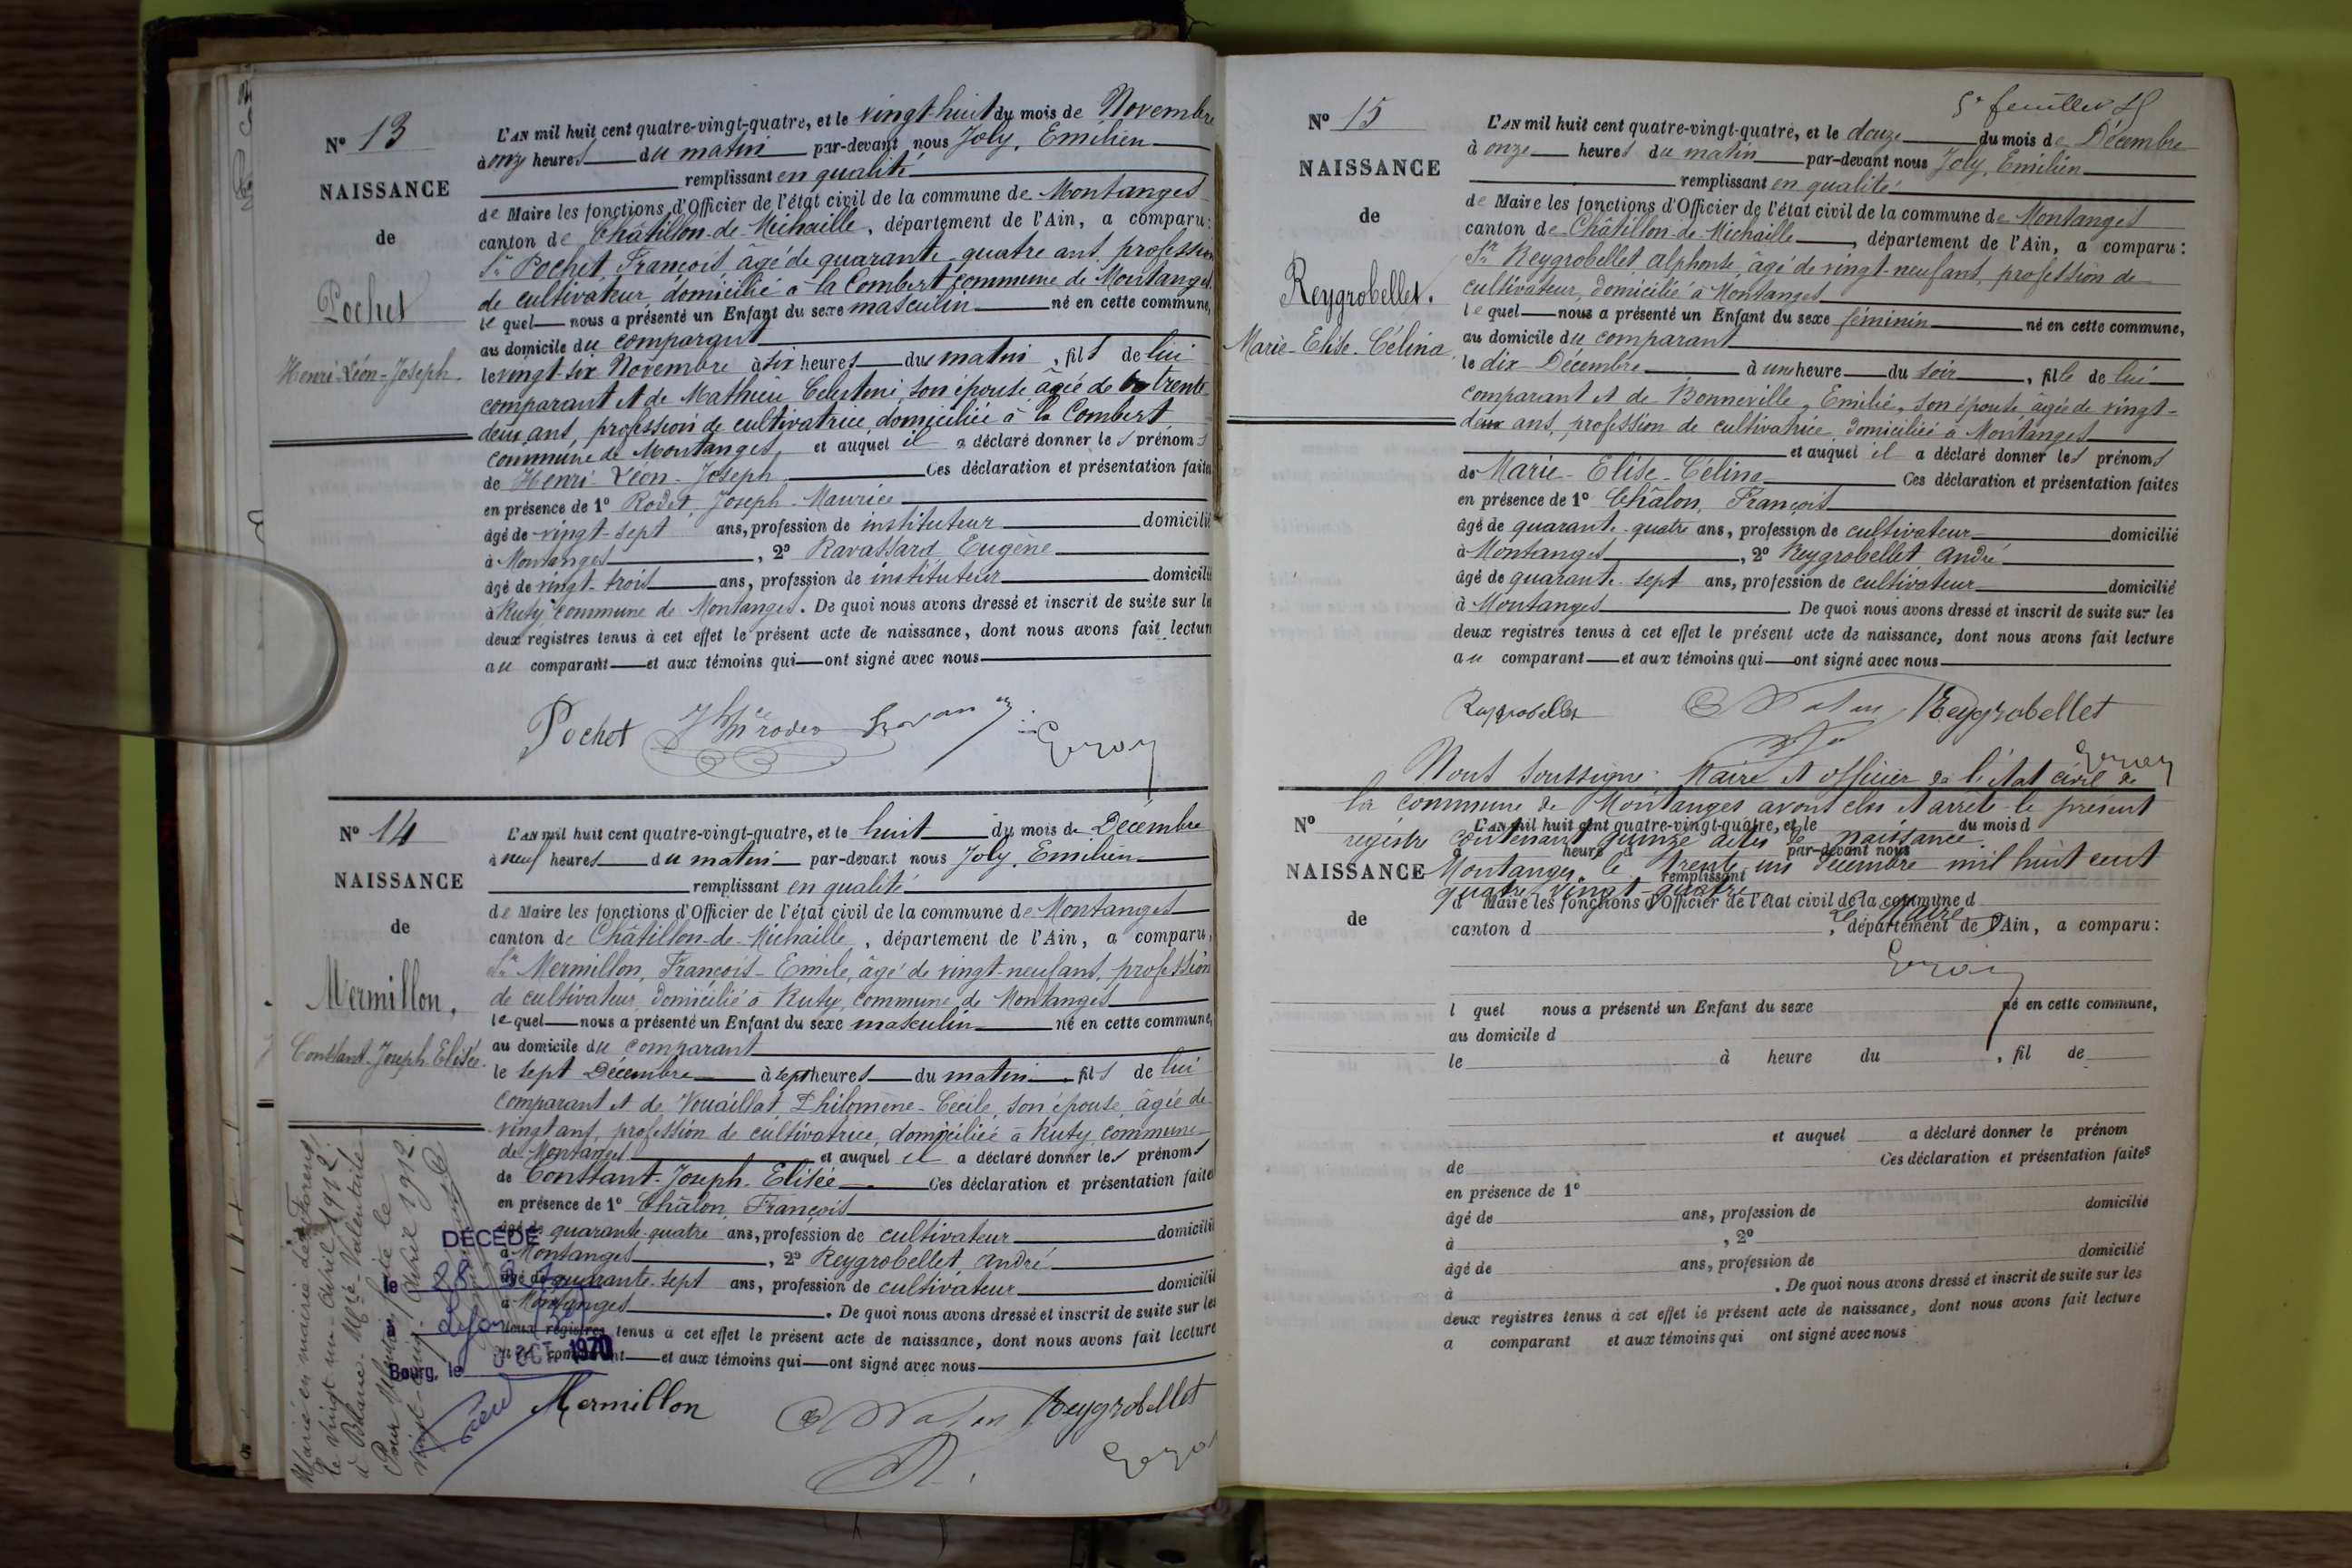 N° 13
NAISSANCE
de
Pochet
Henri-Léon-Joseph.
L'AN mil huit cent quatre-vingt-quatre, et le vingt-huit du mois de Novembre
à onze heures du matin par-devant nous Joly, Emilien
remplissant en qualité
de Maire les fonctions d'Officier de l'état civil de la commune de Montanges
canton de Châtillon-de-Michaille, département de l'Ain, a comparu:
Sr Pochet, François, âgé de quarante-quatre ans, profession
de cultivateur, domicilié à la Combert commune de Montanges
lequel nous a présenté un Enfant du sexe masculin né en cette commune,
au domicile du comparant
le vingt-six Novembre à six heures du matin, fils de lui
comparant et de Mathieu Celestine, son épouse âgée de trente-
deux ans, profession de cultivatrice, domiciliée à la Combert
commune de Montanges, et auquel il a déclaré donner les prénoms
de Henri-Léon-Joseph. Ces déclaration et présentation faites
en présence de 1° Rodet, Joseph-Maurice
âgé de vingt-sept ans, profession de instituteur domicilié
à Montanges, 2° Ravassard Eugène
âgé de vingt-trois ans, profession de instituteur domicilié
à Ruty commune de Montanges. De quoi nous avons dressé et inscrit de suite sur le
deux registres tenus à cet effet le présent acte de naissance, dont nous avons fait lectur
au comparant et aux témoins qui ont signé avec nous
Pochet
N° 14
NAISSANCE
de
Mermillon.
Constant-Joseph-Elisée.
L'AN mil huit cent quatre-vingt-quatre, et le huit du mois de Décembre
à neuf heures du matin par-devant nous Joly, Emilien
remplissant en qualité
de Maire les fonctions d'Officier de l'état civil de la commune de Montanges
canton de Châtillon-de-Michaille, département de l'Ain, a comparu,
Sr Mermillon, François-Emile, âgé de vingt-neuf ans, profession
de cultivateur, domicilié à Ruty, commune de Montanges
lequel nous a présenté un Enfant du sexe masculin né en cette commune,
au domicile du comparant
le sept Décembre à sept heures du matin, fils de lui
comparant et de Vouaillat Philomène-Cécile, son épouse, âgée de
vingt ans, profession de cultivatrice, domiciliée à Ruty, commune
de Montanges et auquel il a déclaré donner les prénoms
de Constant-Joseph-Elisée. Ces déclaration et présentation faites
en présence de 1° Châlon, François
âgé de quarante-quatre ans, profession de cultivateur domicilié
à Montanges, 2° Reygrobellet André
âgé de quarante-sept ans, profession de cultivateur domicilié
à Montanges. De quoi nous avons dressé et inscrit de suite sur les
deux registres tenus à cet effet le présent acte de naissance, dont nous avons fait lecture
au comparant et aux témoins qui ont signé avec nous
Mermillon
Reygrobellet
Marié en mairie de Forens,
le vingt-un-avril 1912,
à Blanc-Mie-Valentaile
Pour Mention faite le
vingt-cinq-Avril 1912.
DÉCÉDÉ
le
Bourg, le OCT. 1970
5e feuillet
N° 15
NAISSANCE
de
Reygrobellet.
Marie-Elise-Célina
L'AN mil huit cent quatre-vingt-quatre, et le douze du mois de Décembre
à onze heures du matin par-devant nous Joly, Emilien
remplissant en qualité
de Maire les fonctions d'Officier de l'état civil de la commune de Montanges
canton de Châtillon-de-Michaille, département de l'Ain, a comparu:
Sr Reygrobellet alphonse, âgé de vingt-neuf ans, profession de
cultivateur, domicilié à Montanges
lequel nous a présenté un Enfant du sexe féminin né en cette commune,
au domicile du comparant
le dix Décembre à une heure du soir, fille de lui
comparant et de Bonneville, Emilie, son épouse âgée de vingt-
deux ans, profession de cultivatrice, domiciliée à Montanges
et auquel il a déclaré donner les prénoms
de Marie-Elise-Célina Ces déclaration et présentation faites
en présence de 1° Châlon, François
âgé de quarante-quatre ans, profession de cultivateur domicilié
à Montanges, 2° Reygrobellet andré
âgé de quarante-sept ans, profession de cultivateur domicilié
à Montanges. De quoi nous avons dressé et inscrit de suite sur les
deux registres tenus à cet effet le présent acte de naissance, dont nous avons fait lecture
au comparant et aux témoins qui ont signé avec nous
Reygrobellet Reygrobellet
Nous soussigné Maire et officier de l'état civil de
la commune de Montanges avons clos et arrêté le présent
registre contenant quinze actes de naissance.
Montanges, le trente un Décembre mil huit cent
quatre-vingt-quatre
Le Maire
N°
NAISSANCE
de
L'AN mil huit cent quatre-vingt-quatre, et le du mois d
à heure d par-devant nous
remplissant
d Maire les fonctions d'Officier de l'état civil de la commune d
canton d , département de l'Ain, a comparu:
l quel nous a présenté un Enfant du sexe né en cette commune,
au domicile d
le à heure du , fil de
et auquel a déclaré donner le prénom
de Ces déclaration et présentation faites
en présence de 1°
âgé de ans, profession de domicilié
à , 2°
âgé de ans, profession de domicilié
à . De quoi nous avons dressé et inscrit de suite sur les
deux registres tenus à cet effet le présent acte de naissance, dont nous avons fait lecture
a comparant et aux témoins qui ont signé avec nous